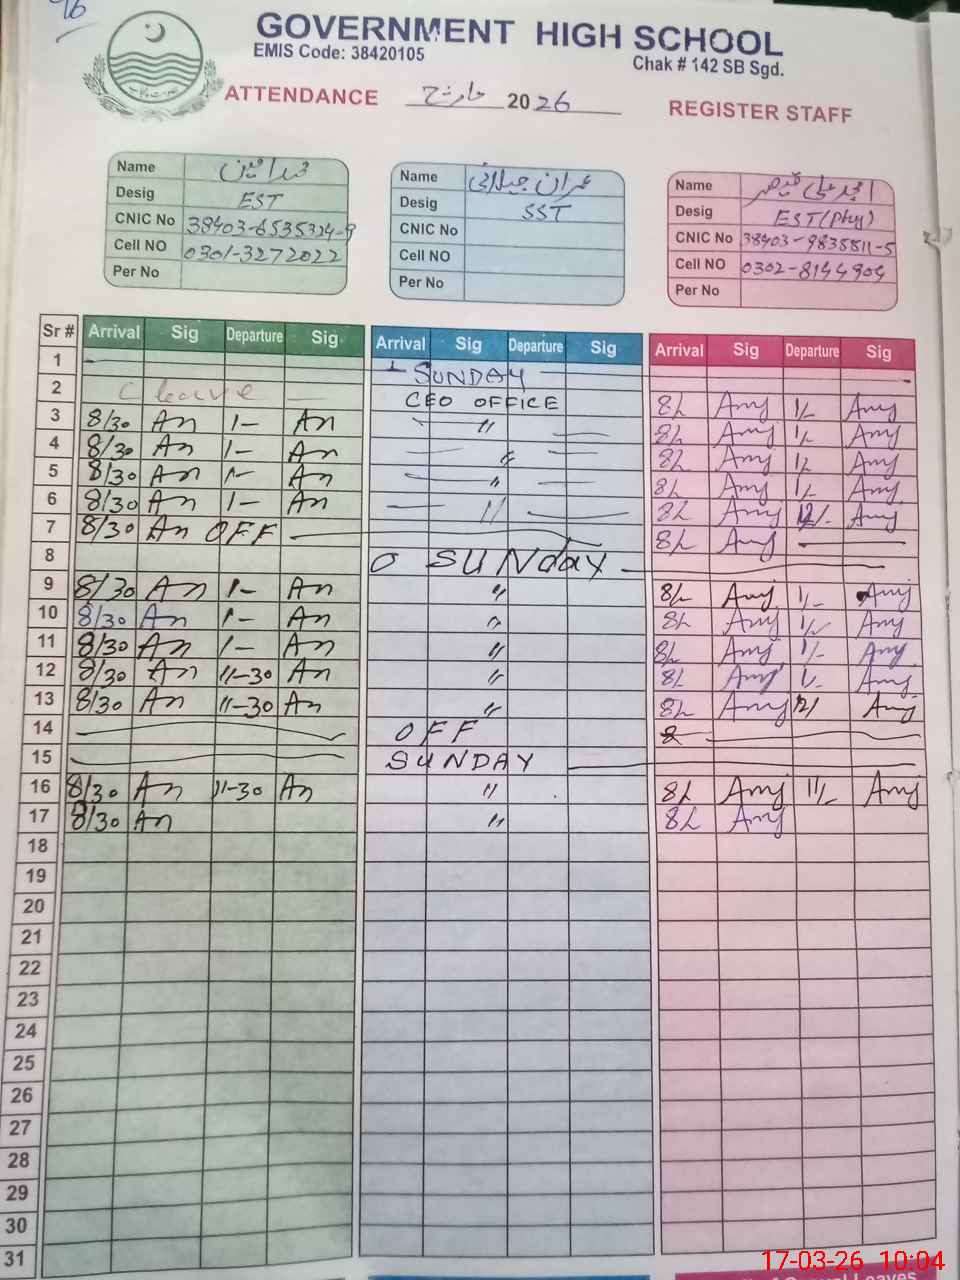 96
GOVERNMENT HIGH SCHOOL
EMIS Code: 38420105
Chak # 142 SB Sgd.
ATTENDANCE مارچ 2026 REGISTER STAFF
Name
Desig EST
CNIC No 38403-6535324-9
Cell NO 0301-3272022
Per No
Name عمران جیلانی
Desig SST
CNIC No
Cell NO
Per No
Name امجد علی قیصر
Desig EST(Phy)
CNIC No 38403-9838811-5
Cell NO 0302-8144904
Per No
Sr # Arrival Sig Departure Sig Arrival Sig Departure Sig Arrival Sig Departure Sig
1 — SUNDAY —
2 C leave — CEO OFFICE 8L Amj 1/- Amj
3 8/30 An 1- An — " — 8L Amj 1/- Amj
4 8/30 An 1- An — " — 8L Amj 1/- Amj
5 8/30 An 1- An — " — 8L Amj 1/- Amj
6 8/30 An 1- An — " — 8L Amj 12/- Amj
7 8/30 An OFF — 8L Amj —
8 SUNday —
9 8/30 An 1- An " 8L Amj 1/- Amj
10 8/30 An 1- An " 8L Amj 1/- Amj
11 8/30 An 1- An " 8L Amj 1/- Amj
12 8/30 An 11-30 An " 8L Amj 1/- Amj
13 8/30 An 11-30 An " 8L Amj 12/ Amj
14 — OFF —
15 — SUNDAY —
16 8/30 An 11-30 An " 8L Amj 11/- Amj
17 8/30 An " 8L Amj
18
19
20
21
22
23
24
25
26
27
28
29
30
31
17-03-26 10:04